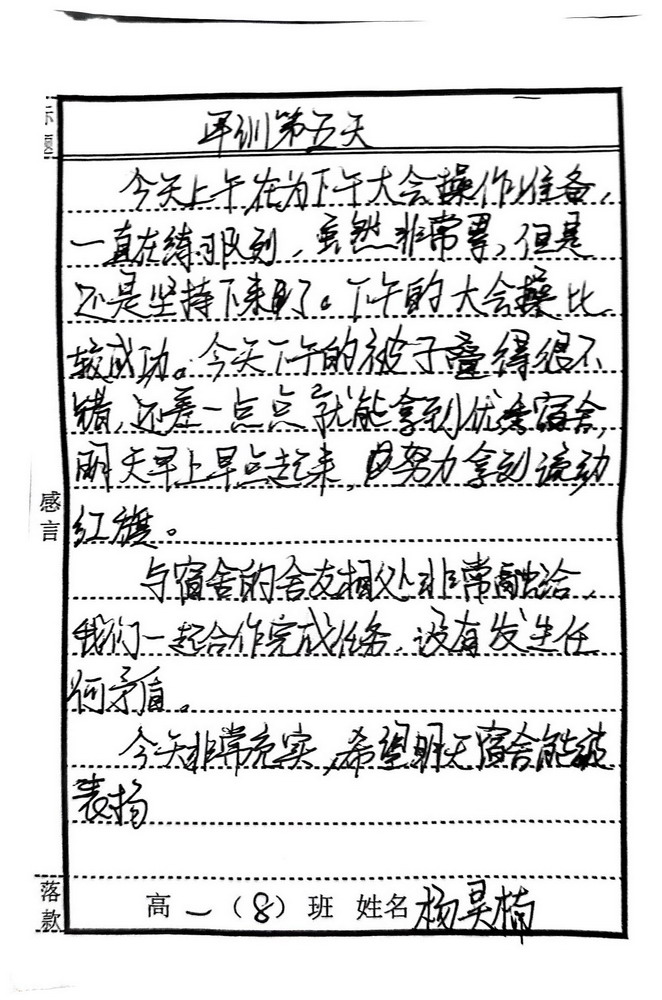 标题
军训第五天
今天上午在为下午大会操作准备，
一直在练习队列，虽然非常累，但是
还是坚持下来了。下午的大会操比
较成功。今天下午的被子叠得很不
错，还差一点点就能拿到优秀宿舍，
明天早上早点起来，努力拿到流动
红旗。
感言
与宿舍的舍友相处非常融洽，
我们一起合作完成任务，没有发生任
何矛盾。
今天非常充实，希望明天宿舍能被
表扬
落款
高一（8）班 姓名 杨昊楠